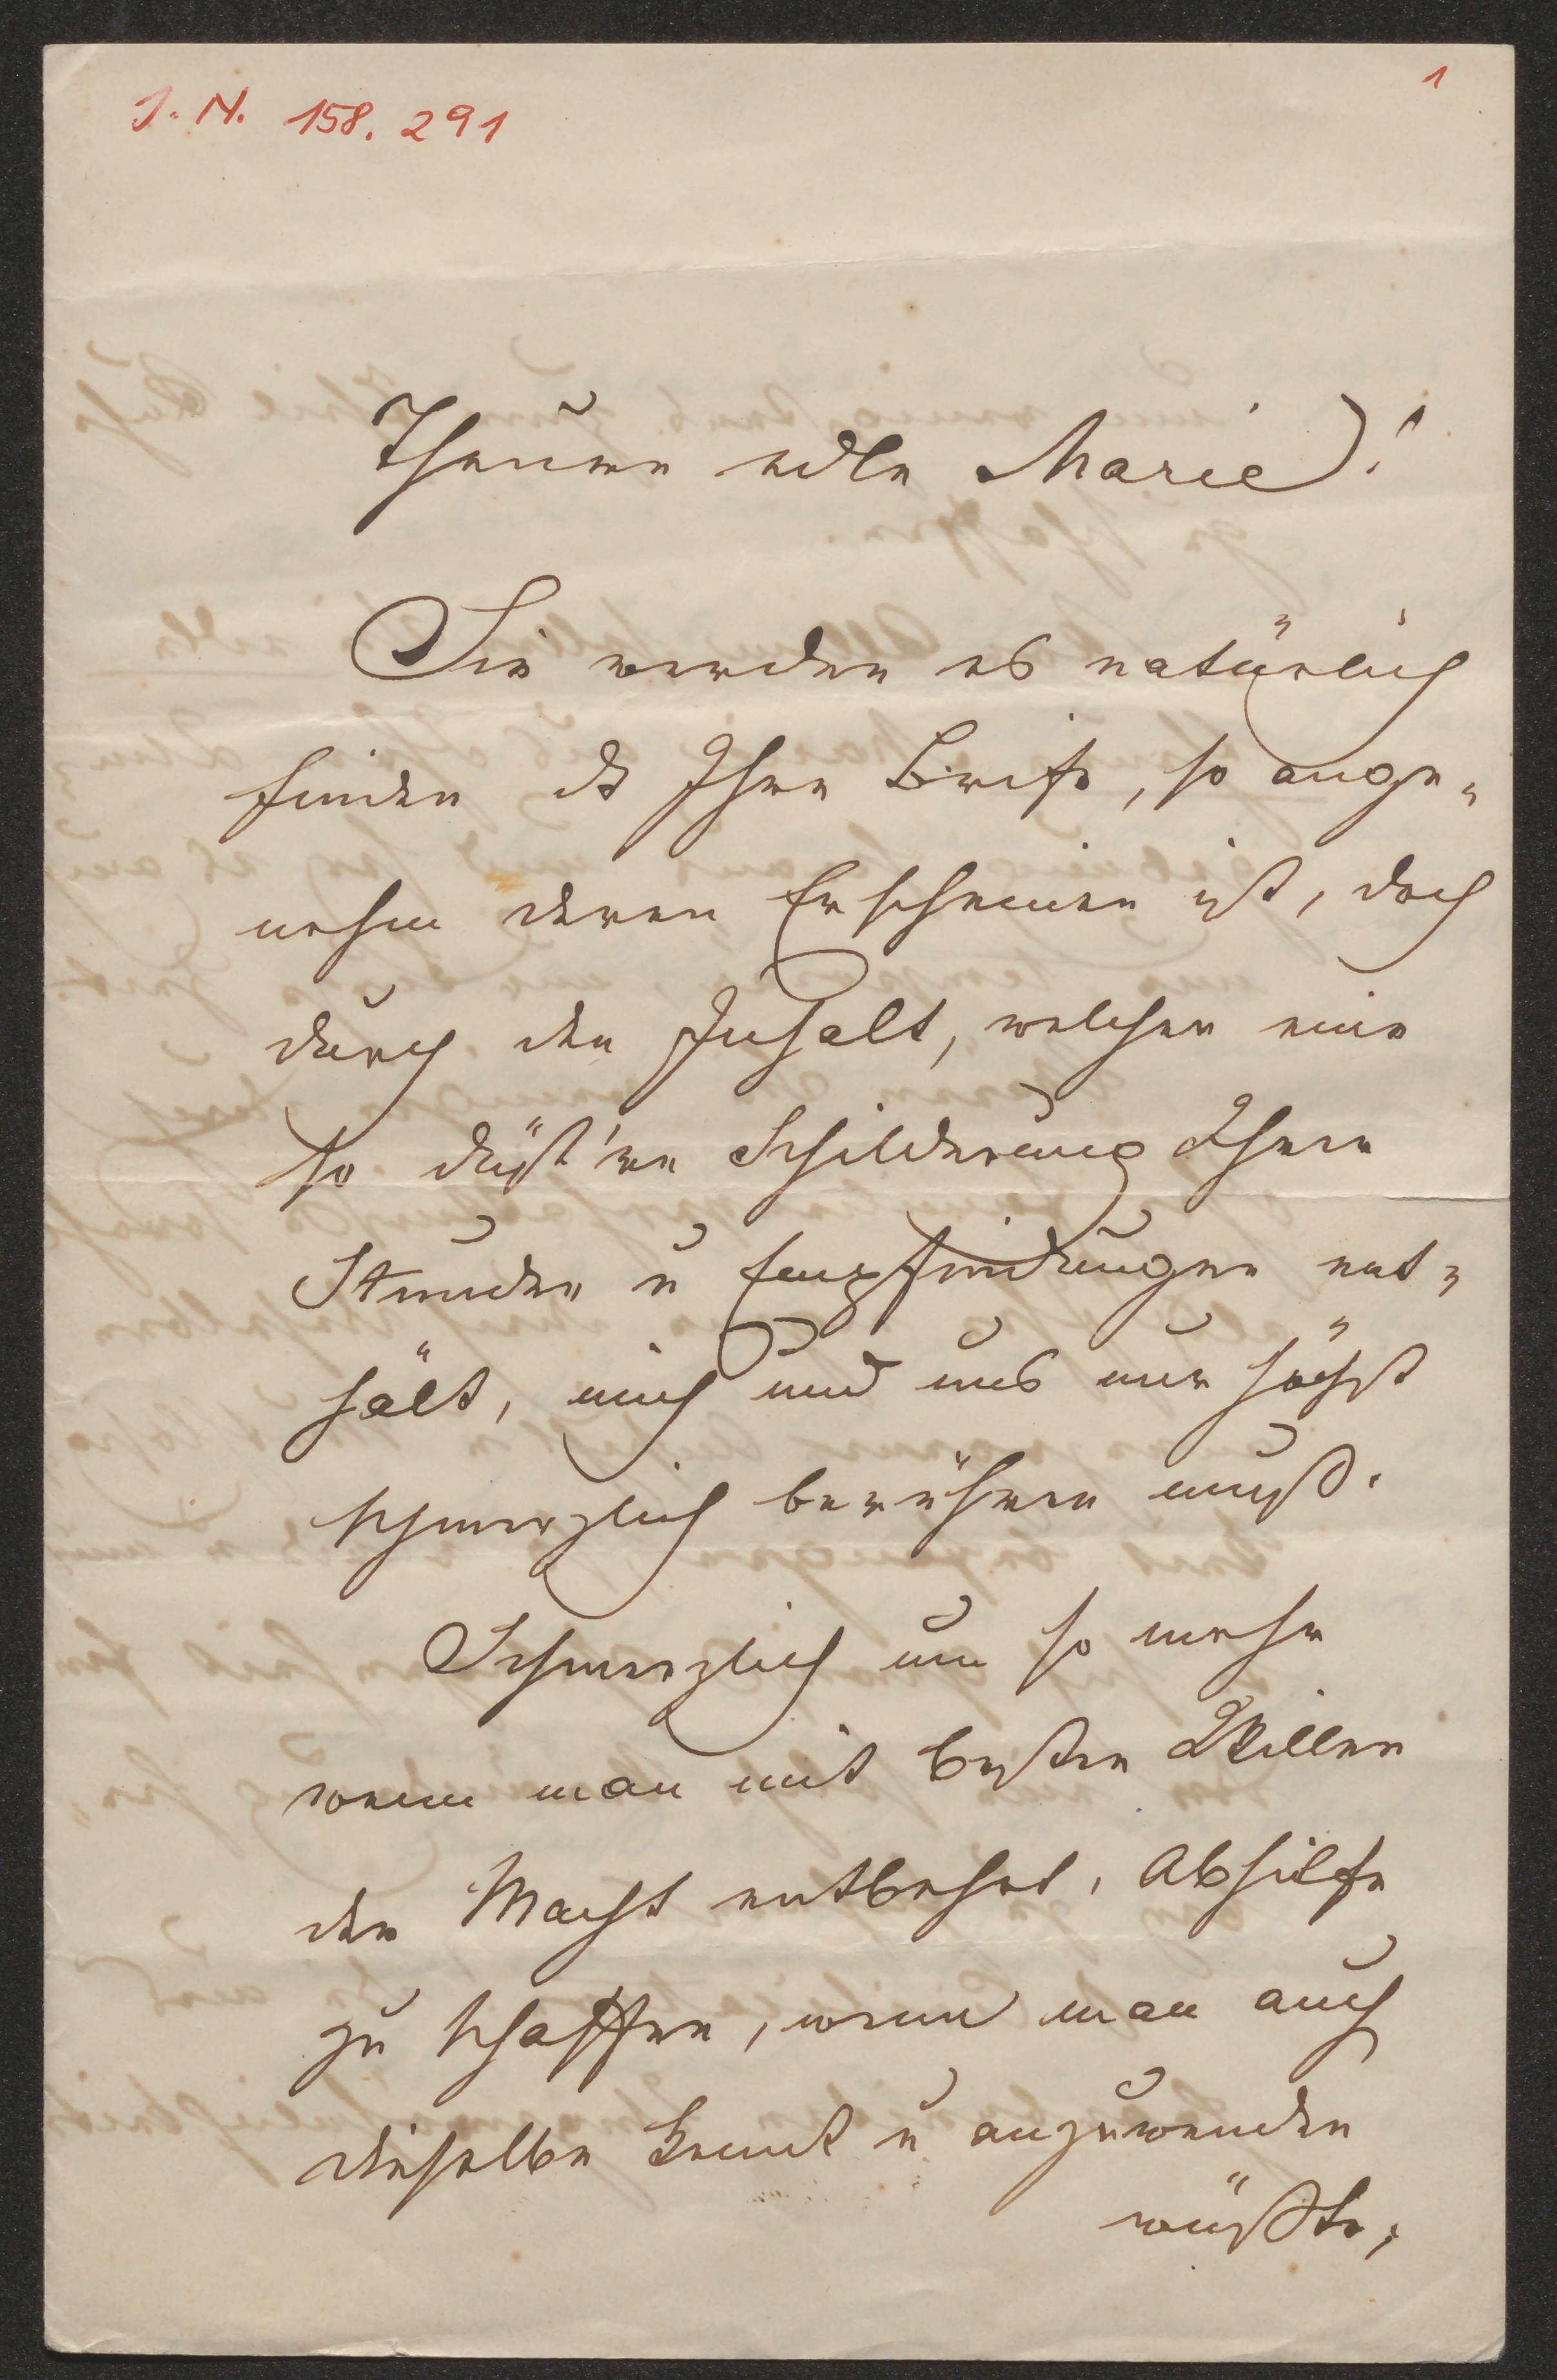 J. N. 158.291
1
Theuere edle Marie!
Sie werden es natürlich
finden ds Ihre Briefe, so ange-
nehm deren Erscheinen ist, doch
durch den Inhalt, welcher eine
so düst're Schilderung Ihrer
Stunden u Empfindungen ent-
hält, mich und uns nur höchst
schmerzlich berühren muß.
Schmerzlich um so mehr
wenn man mit besten Willen
der Macht entbehrt, Abhilfe
zu schaffen, wenn man auch
dieselbe kennt u anzuwenden
wüßte,